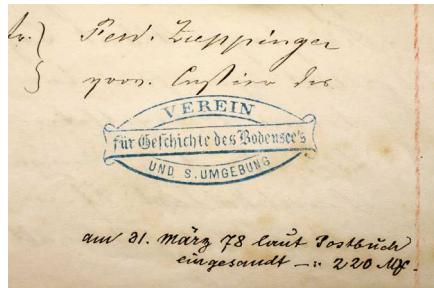 Ferd. Zuppinger
prov. Cassier des
VEREIN
für Geschichte des Bodensee's
UND S. UMGEBUNG
am 31. März 78 laut Postbuch
eingesandt —: 220 Mk.